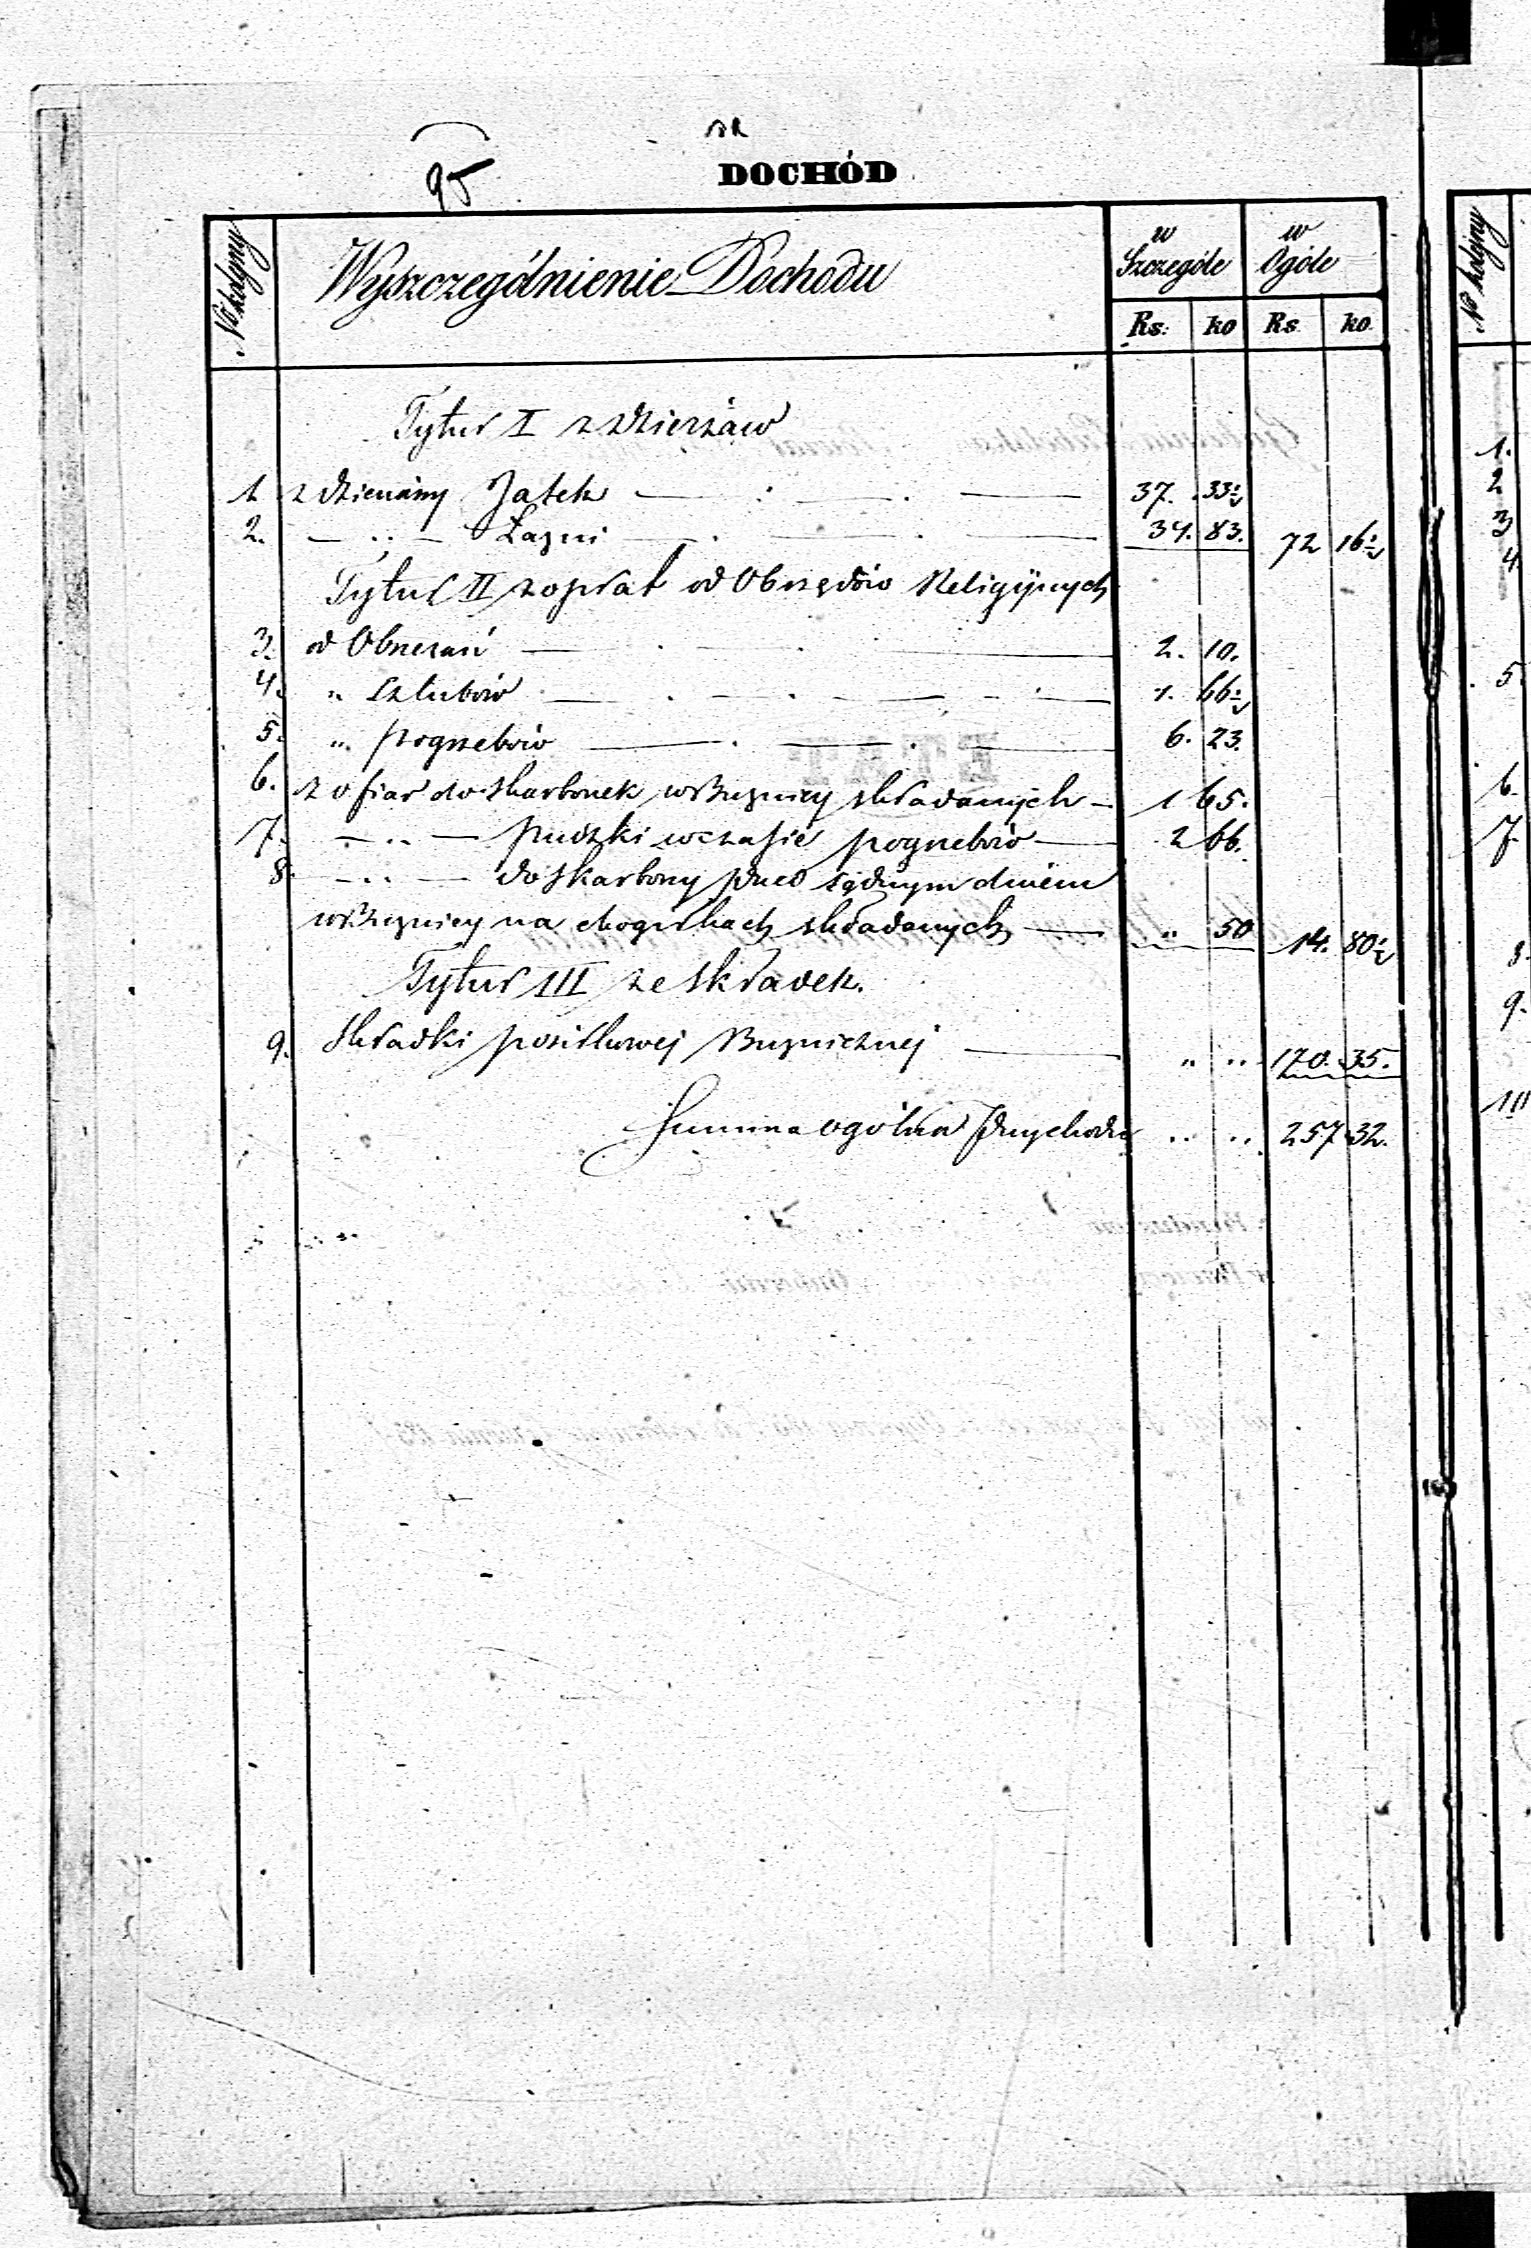 95
DOCHÓD
№ kolejny Wyszczególnienie Dochodu w Szczególe w Ogóle
Rs: ko Rs ko.
Tytuł I z dzierżaw
1 z dzierżawy Jatek 37. 33½
2. — „ — Łaźni 34. 83. 72 16½
Tytuł II z opłat od Obrzędów Religijnych
3. od Obrzezań 2. 10.
4. „ Szlubów 1. 66½
5. „ pogrzebów 6. 23.
6. z ofiar do skarbonek w Bużnicy składanych 1 65.
7. — „ — puszki w czasie pogrzebów 2 66.
8. — „ — do skarbony przed sądnym dniem
w Bużnicy na składanych „ 50 14. 80½
Tytuł III ze składek.
9. Składki posiłkowej Bużnicznej „ „ 170. 35.
Summa ogólna Przychodu „ „ 257 32.
№ kolejny
1.
2
3
4.
5.
6.
7.
8.
9.